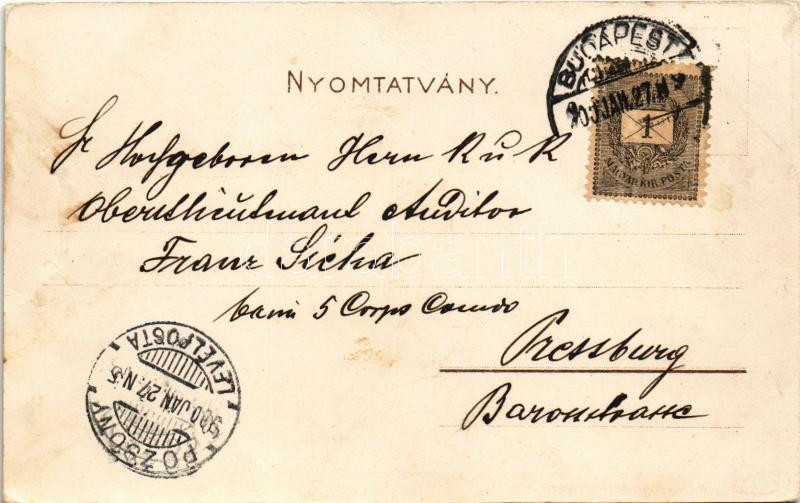 BUDAPEST
900 JAN. 27. N 9
NYOMTATVÁNY.
1
MAGYAR KIR. POSTA
Sr Hochgeboren Herrn K u K
Oberstlieutenant Auditor
Franz Sicha
beim 5 Corps Comdo
Pressburg
LEVÉLPOSTA
900 JAN. 27. N. 5
POZSONY